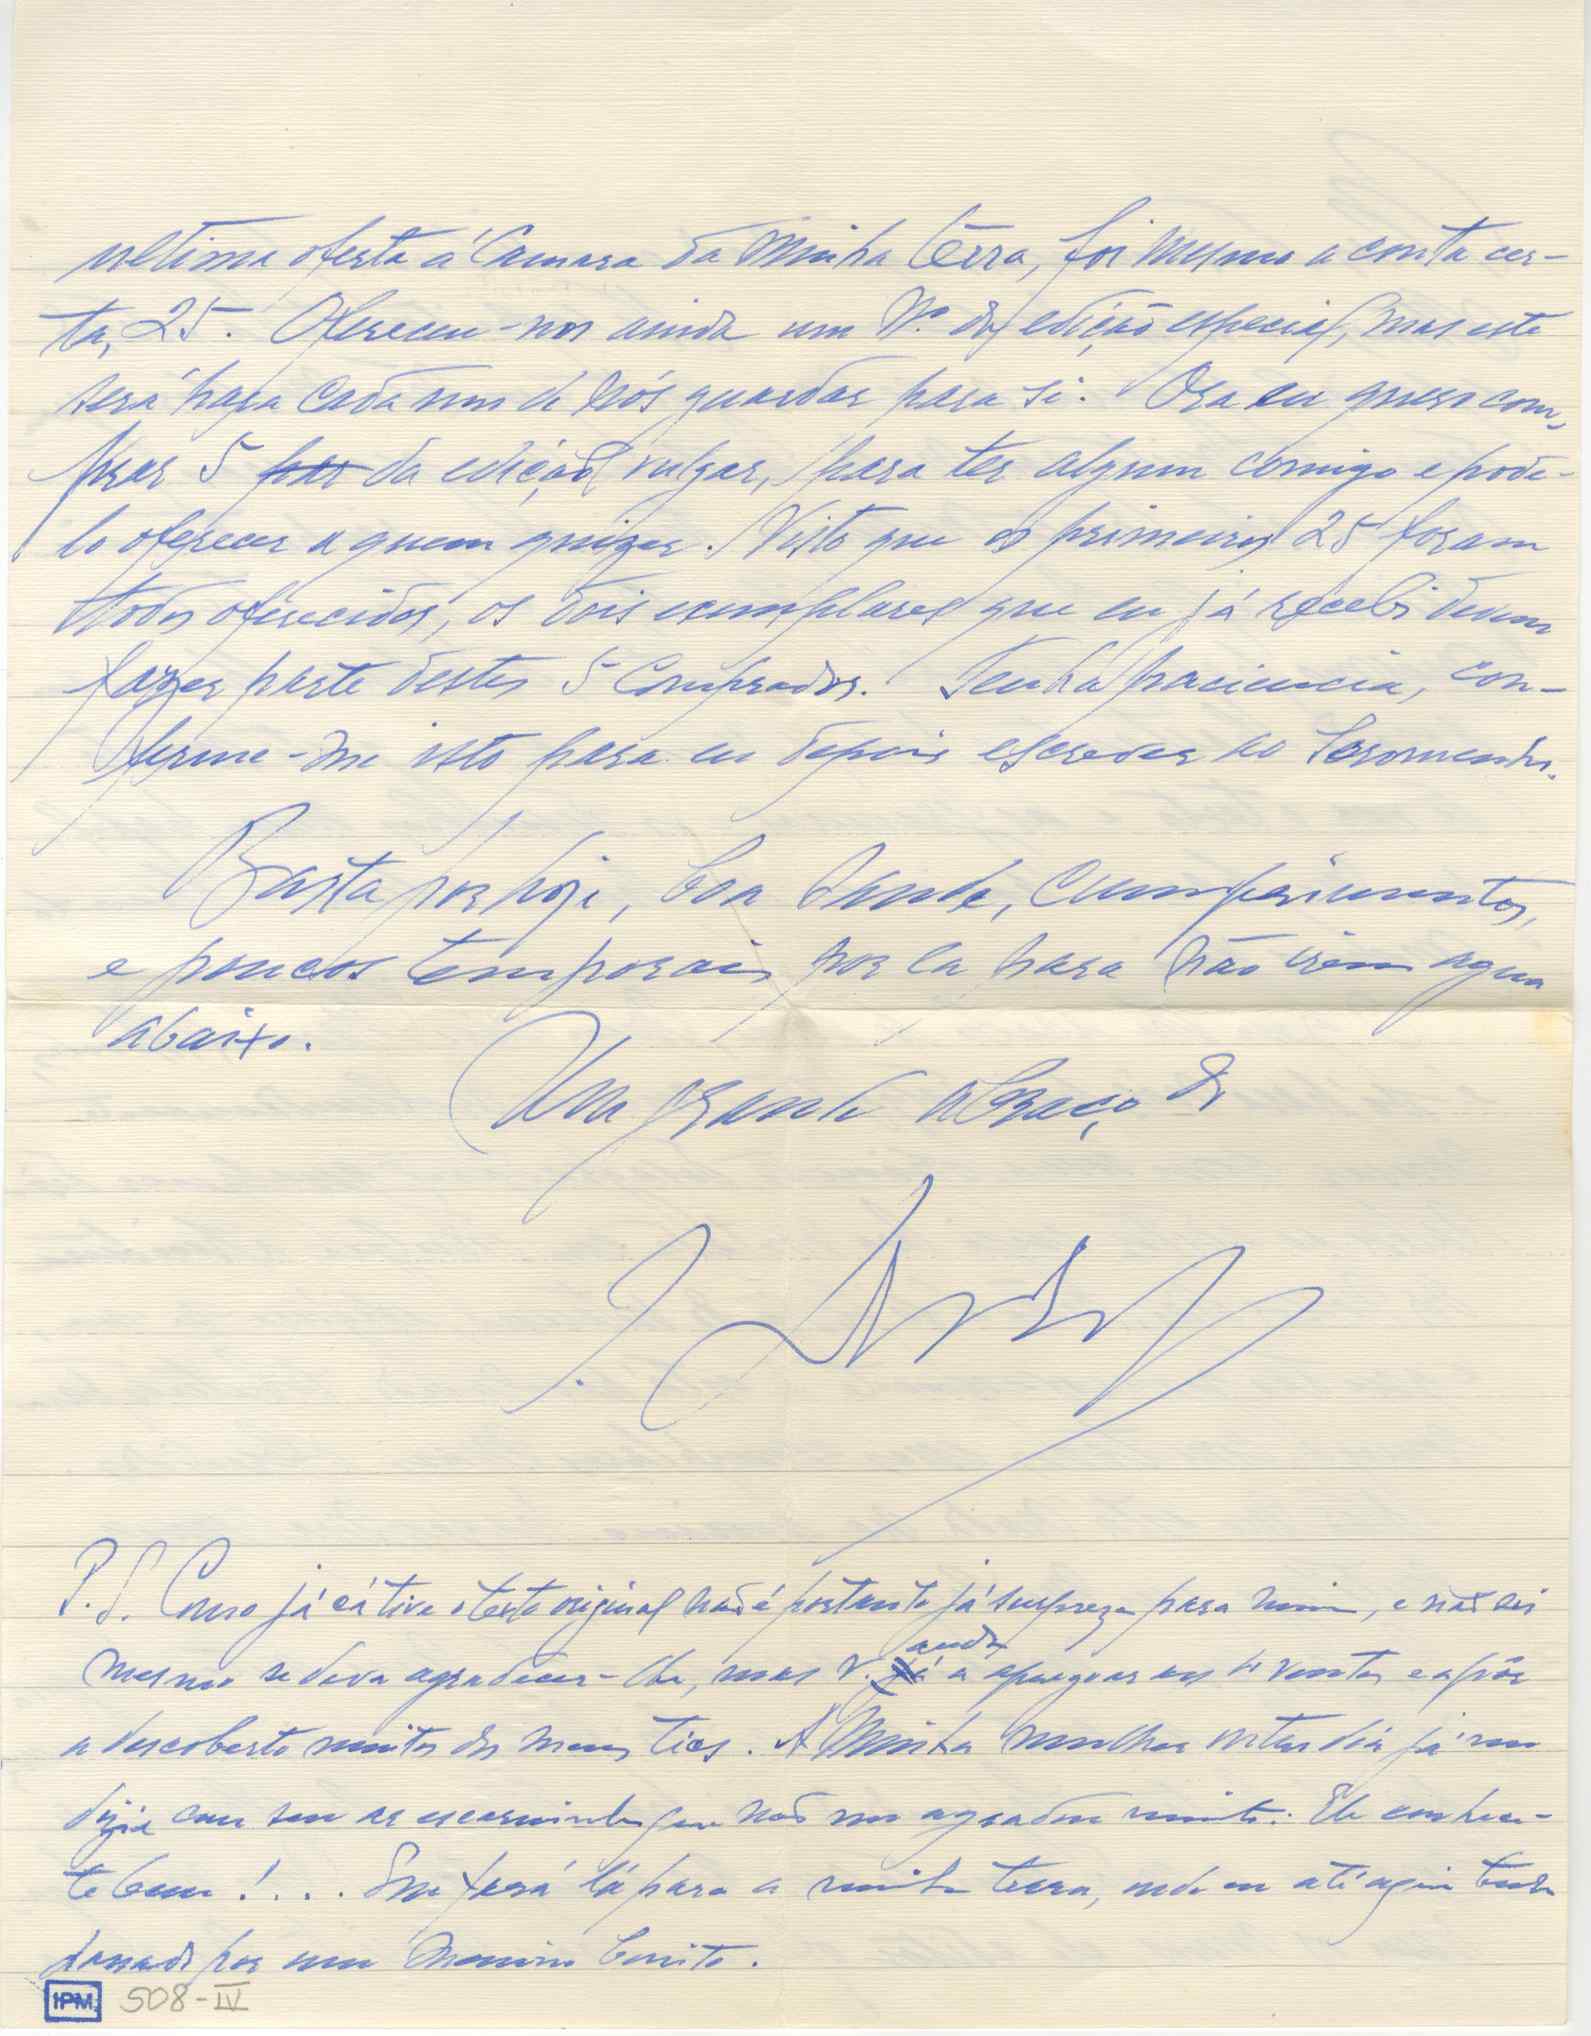 ultima oferta á Camara da Minha térra, foi mesmo a conta cer-
ta, 25. Ofereceu-nos ainda um Nº da edição especial, mas este
será para cada um de nós guardar para si. Ora eu quero com-
prar 5 da edição vulgar, para ter algum comigo e pode-
lo oferecer a quem quizer. Visto que os primeiros 25 foram
todos oferecidos, os dois exemplares que eu já recebi devem
fazer parte destes 5 comprados. Tenha paciencia, con-
firme-me isto para eu depois escrever ao Soromenho.
Basta por hoje, boa saude, cumprimentos,
e poucos temporais por la para não irem agua
abaixo.
Um grande abraço de
P.S. Como já cá tive o texto original não é portanto já surpreza para mim, e não sei
mesmo se deva agradecer-lhe, mas v. anda a apregoar aos 4 ventos e a pôr
a descoberto muitos dos meus tics. A Minha mulher outro dia já me
dizia com um ar escarninho que não me agradou muito: Ele conhece-
te bem! . . . Que fará lá para a minha terra, onde eu até aqui tenho
passado por um Menino bonito.
IPM 508-IV